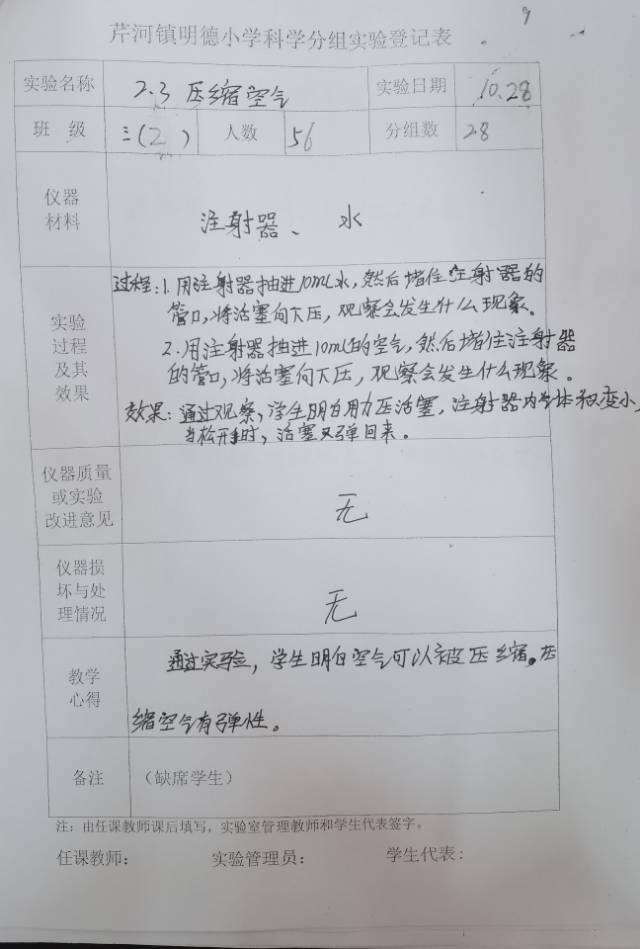 芹河镇明德小学科学分组实验登记表
实验名称 2.3 压缩空气 实验日期 10.28
班 级 三(2) 人数 56 分组数 28
仪器
材料
注射器、 水
实验
过程
及其
效果
过程:1.用注射器抽进10mL水,然后堵住注射器的
管口,将活塞向下压,观察会发生什么现象。
2.用注射器抽进10mL的空气,然后堵住注射器
的管口,将活塞向下压,观察会发生什么现象。
效果:通过观察,学生明白用力压活塞,注射器内气体积变小,
当松开时,活塞又弹回来。
仪器质量
或实验
改进意见
无
仪器损
坏与处
理情况
无
教学
心得
通过实验,学生明白空气可以被压缩。压
缩空气有弹性。
备注 (缺席学生)
注:由任课教师课后填写,实验室管理教师和学生代表签字。
任课教师: 实验管理员: 学生代表: